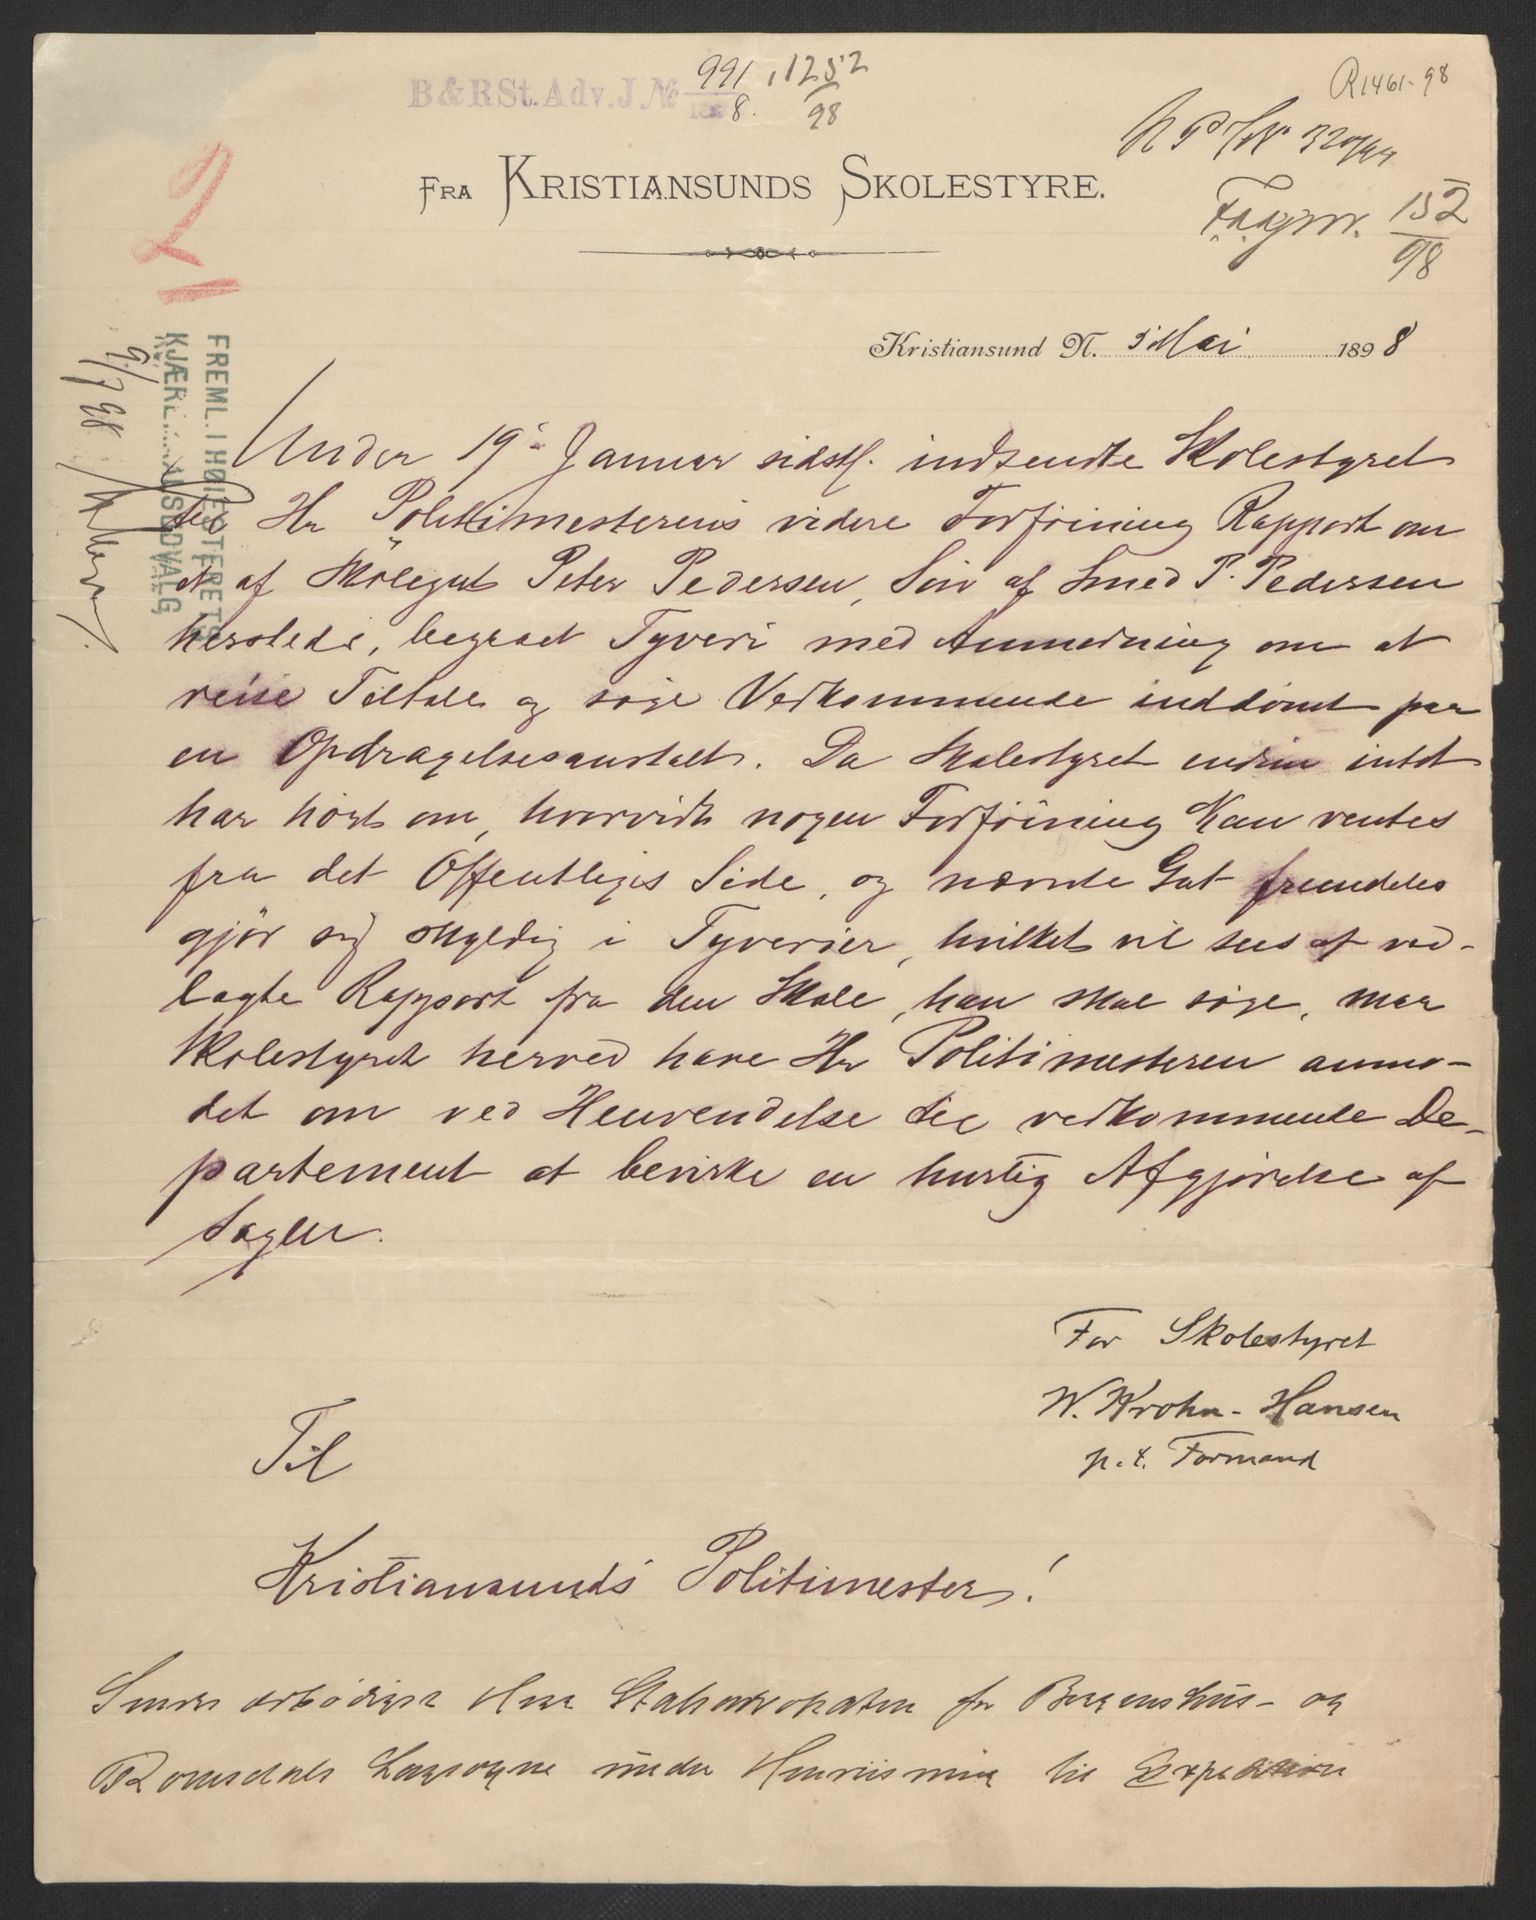 B & R St. Adv. J. № 991/1898. , 1252/98
R1461-98
152/98
2
FRA KRISTIANSUNDS SKOLESTYRE.
Kristiansund N. 5 Mai 1898
FREML. I HØIESTERETS
KJÆREMAALSUDVALG
9/7 98
Under 19de Januar sidstl. indsendte Skolestyret
til Hr Politimesterens videre Forføining Rapport om
et af Skolegut Peter Pedersen, Søn af Smed P. Pedersen
hersteds, begaaet Tyveri med Anmodning om at
reise Tiltale og søge Vedkommende inddømt paa
en Opdragelsesanstalt. Da Skolestyret endnu intet
har hørt om, hvorvidt nogen Forføining kan ventes
fra det Offentliges Side, og nævnte Gut fremdeles
gjør sig skyldig i Tyverier, hvilket vil sees af ved-
lagte Rapport fra den Skole, han skal søge, maa
Skolestyret herved have Hr Politimesteren anmo-
det om ved Henvendelse til vedkommende De-
partement at bevirke en hurtig Afgjørelse af
Sagen.
For Skolestyret
W. Krohn-Hansen
p. t. Formand
Til
Kristiansunds Politimester!
Sendes ærbødigst Herr Statsadvokaten for Bergenhus- og
Romsdals Lagsogne under Henvisning til Expedition